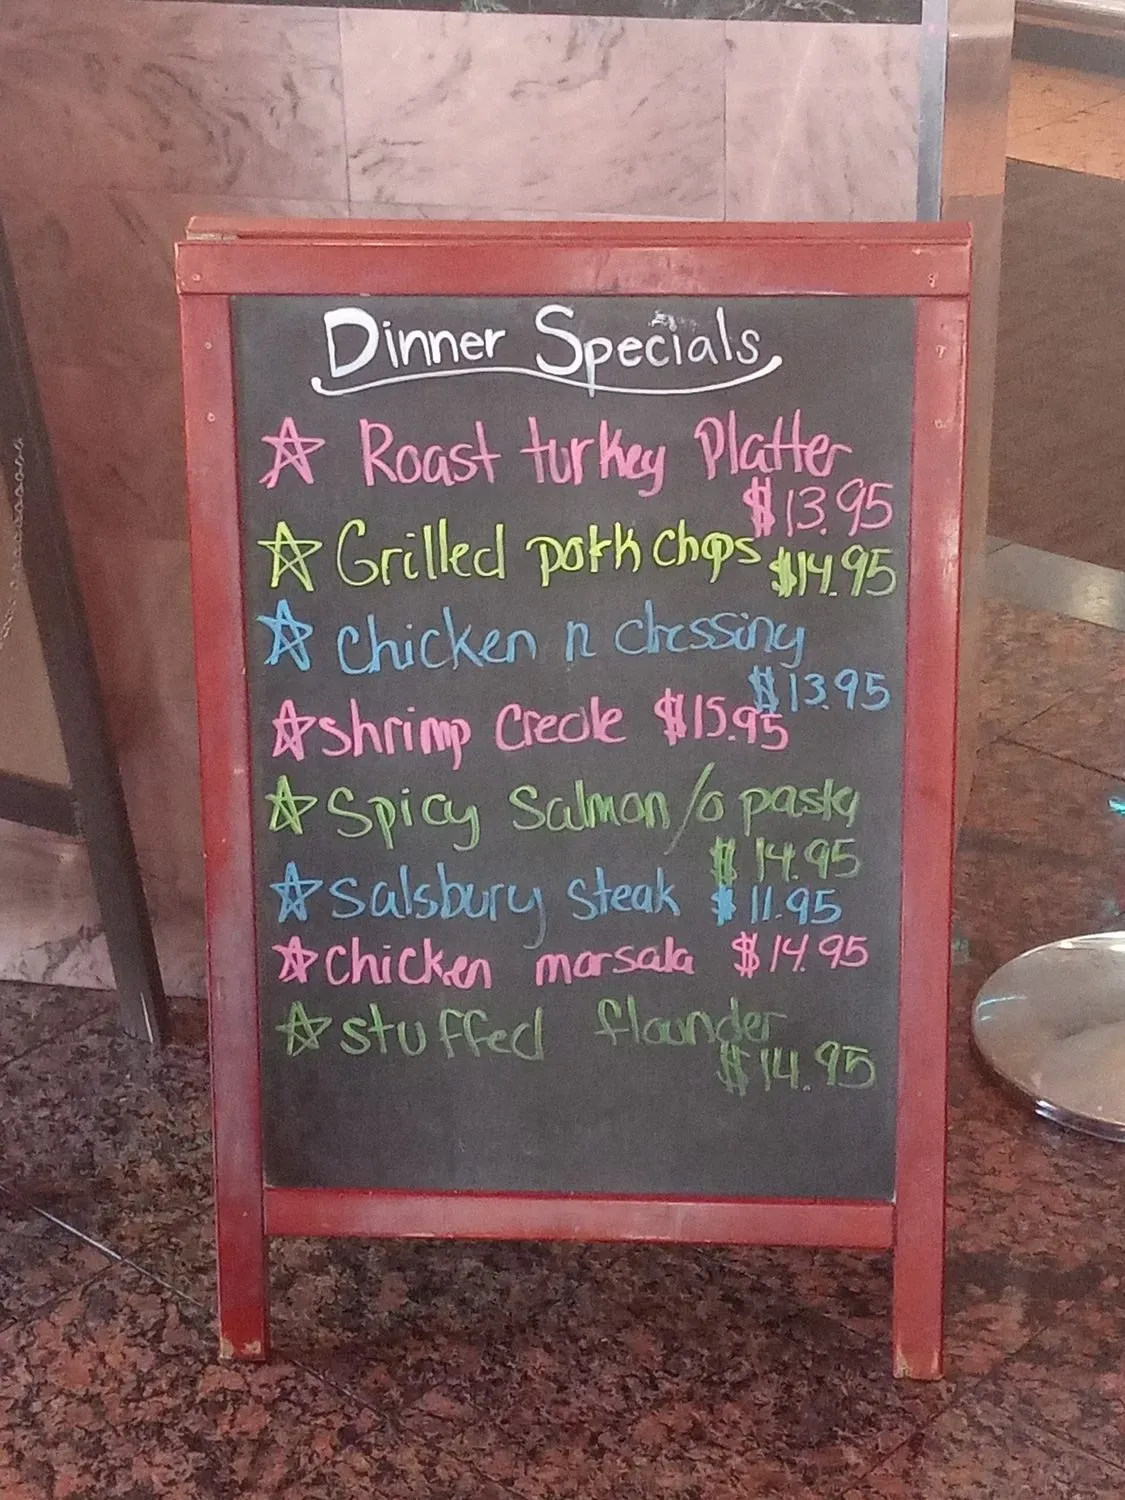 Dinner Specials
☆ Roast turkey Platter
$13.95
☆ Grilled pork chops $14.95
☆ Chicken n dressing
$13.95
☆ shrimp Creole $15.95
☆ Spicy Salmon /o pasta
$14.95
☆ Salsbury steak $11.95
☆ Chicken marsala $14.95
☆ stuffed flounder
$14.95